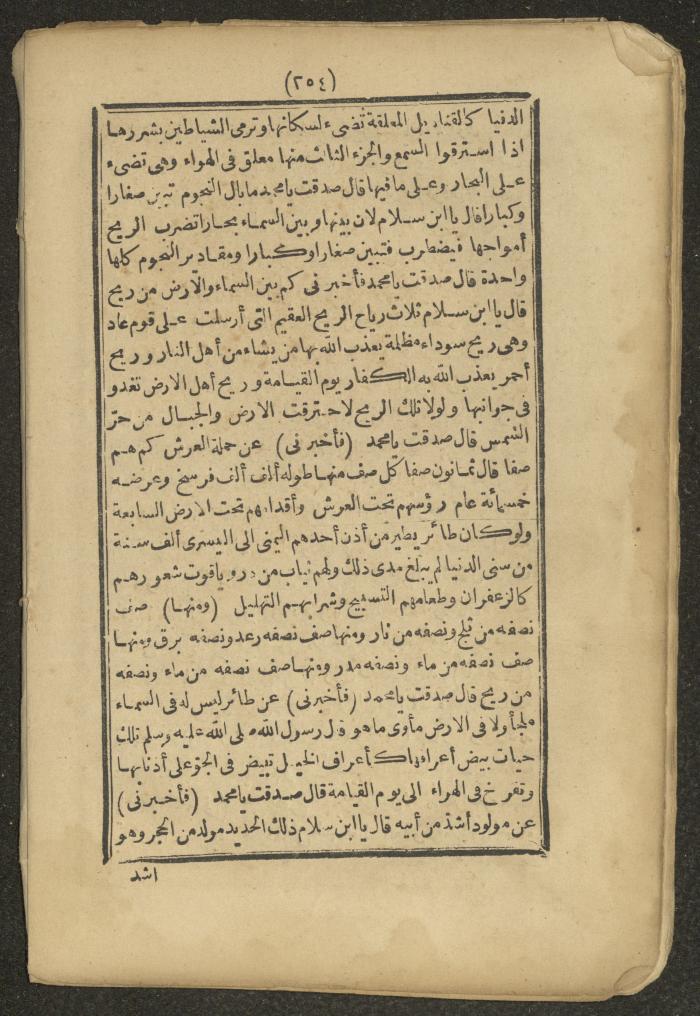 (٢٥٤)
الدنيا كالقناديل المعلقة تضىء لسكانها وترمى الشياطين بشررها
اذا استرقوا السمع والجزء الثالث منها معلق فى الهواء وهى تضىء
على البحار وعلى ما فيها قال صدقت يا محمد ما بال النجوم تبين صغارا
وكبارا قال يا ابن سلام لان بينها وبين السماء بحارا تضرب الريح
أمواجها فيضطرب فتبين صغارا وكبارا ومقادير النجوم كلها
واحدة قال صدقت يا محمد فأخبرنى كم بين السماء والارض من ريح
قال يا ابن سلام ثلاث رياح الريح العقيم التى أرسلت على قوم عاد
وهى ريح سوداء مظلمة يعذب الله بها من يشاء من أهل النار وريح
أحمر يعذب الله به الكفار يوم القيامة وريح أهل الارض تغدو
فى جوانبها ولولا تلك الريح لاحترقت الارض والجبال من حر
الشمس قال صدقت يا محمد (فأخبرنى) عن حملة العرش كم هم
صفا قال ثمانون صفا كل صف منها طوله ألف ألف فرسخ وعرضه
خمسمائة عام رؤسهم تحت العرش وأقدامهم تحت الارض السابعة
ولو كان طائر يطير من أذن أحدهم اليمنى الى اليسرى ألف سنة
من سنى الدنيا لم يبلغ مدى ذلك ولهم ثياب من در وياقوت شعورهم
كالزعفران وطعامهم التسبيح وشرابهم التهليل (ومنها) صف
نصفه من ثلج ونصفه من نار ومنها صف نصفه رعد ونصفه برق ومنها
صف نصفه من ماء ونصفه مدر ومنها صف نصفه من ماء ونصفه
من ريح قال صدقت يا محمد (فأخبرنى) عن طائر ليس له فى السماء
ملجأ ولا فى الارض مأوى ما هو قال رسول الله صلى الله عليه وسلم تلك
حيات بيض أعرافها كأعراف الخيل تبيض فى الجو على أذنابها
وتفرخ فى الهواء الى يوم القيامة قال صدقت يا محمد (فأخبرنى)
عن مولود أشد من أبيه قال يا ابن سلام ذلك الحديد مولد من الحجر وهو
اشد